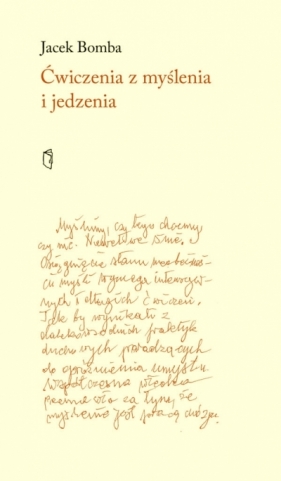 Jacek Bomba
Ćwiczenia z myślenia
i jedzenia
Myślimy, czy tego chcemy,
czy nie. Niewątpliwie
Osiągnięcie stanu
myśli wymaga intensyw-
nych i długich ćwiczeń.
Tak by wynikało z
dalekowschodnich praktyk
duchowych prowadzących
do opróżnienia umysłu.
Współczesna wiedza
przemawia za tym, że
myślenie jest pracą mózgu.